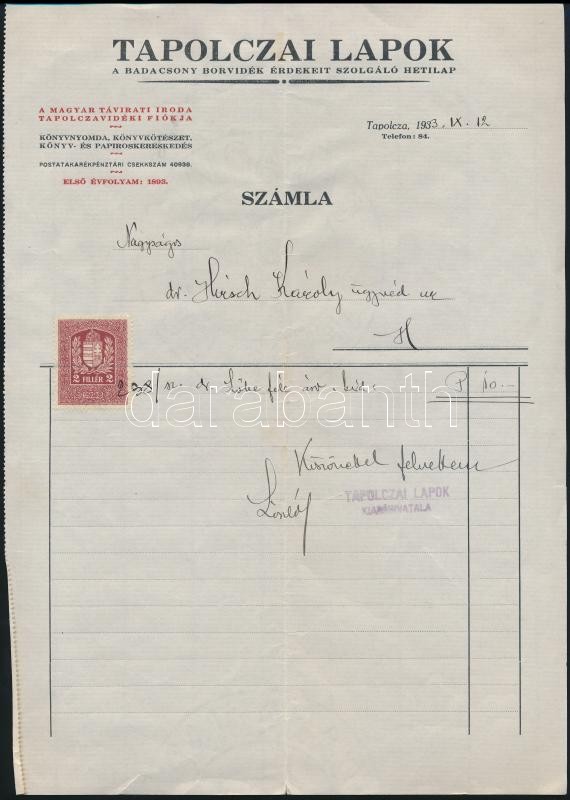 TAPOLCZAI LAPOK
A BADACSONY BORVIDÉK ÉRDEKEIT SZOLGÁLÓ HETILAP
A MAGYAR TÁVIRATI IRODA
TAPOLCZAVIDÉKI FIÓKJA
KÖNYVNYOMDA, KÖNYVKÖTÉSZET,
KÖNYV- ÉS PAPIROSKERESKEDÉS
POSTATAKARÉKPÉNZTÁRI CSEKKSZÁM 40938.
ELSŐ ÉVFOLYAM: 1893.
Tapolcza, 1933. IX. 12
Telefon: 84.
SZÁMLA
Nagyságos
dr. Hirsch Károly ügyvéd ur
H
2 FILLÉR 2
dr P 10.-
Köszönettel felvettem
TAPOLCZAI LAPOK
KIADÓHIVATALA
darabanth